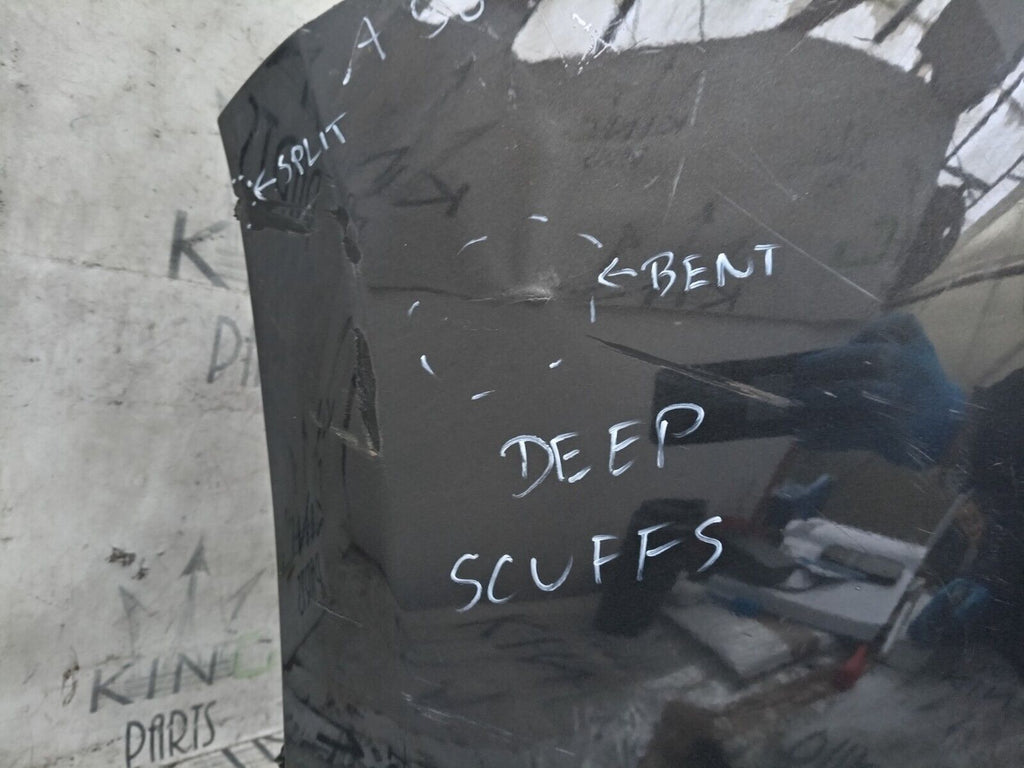 A
← SPLIT
← BENT
DEEP
SCUFFS
KING
PARTS